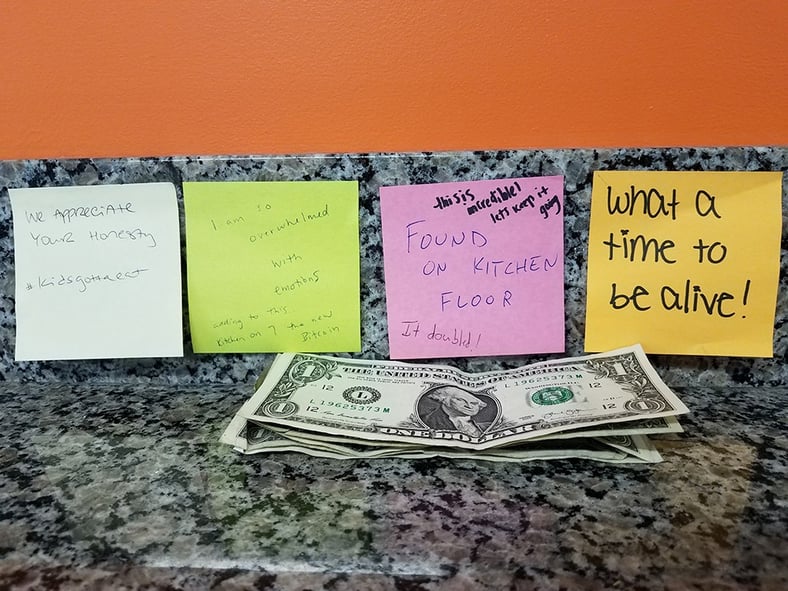 We Appreciate
Your Honesty
#kidsgottaeat
I am so
overwhelmed
with
emotions
adding to this.
Kitchen on 7 the new
Bitcoin
this is
incredible!
let's keep it
going
FOUND
ON KITCHEN
FLOOR
It doubled!
What a
time to
be alive!
FEDERAL RESERVE NOTE
THE UNITED STATES OF AMERICA
L 19625373 M
L 19625373 M
12
12
12
12
L
1
1
1
1
ONE DOLLAR